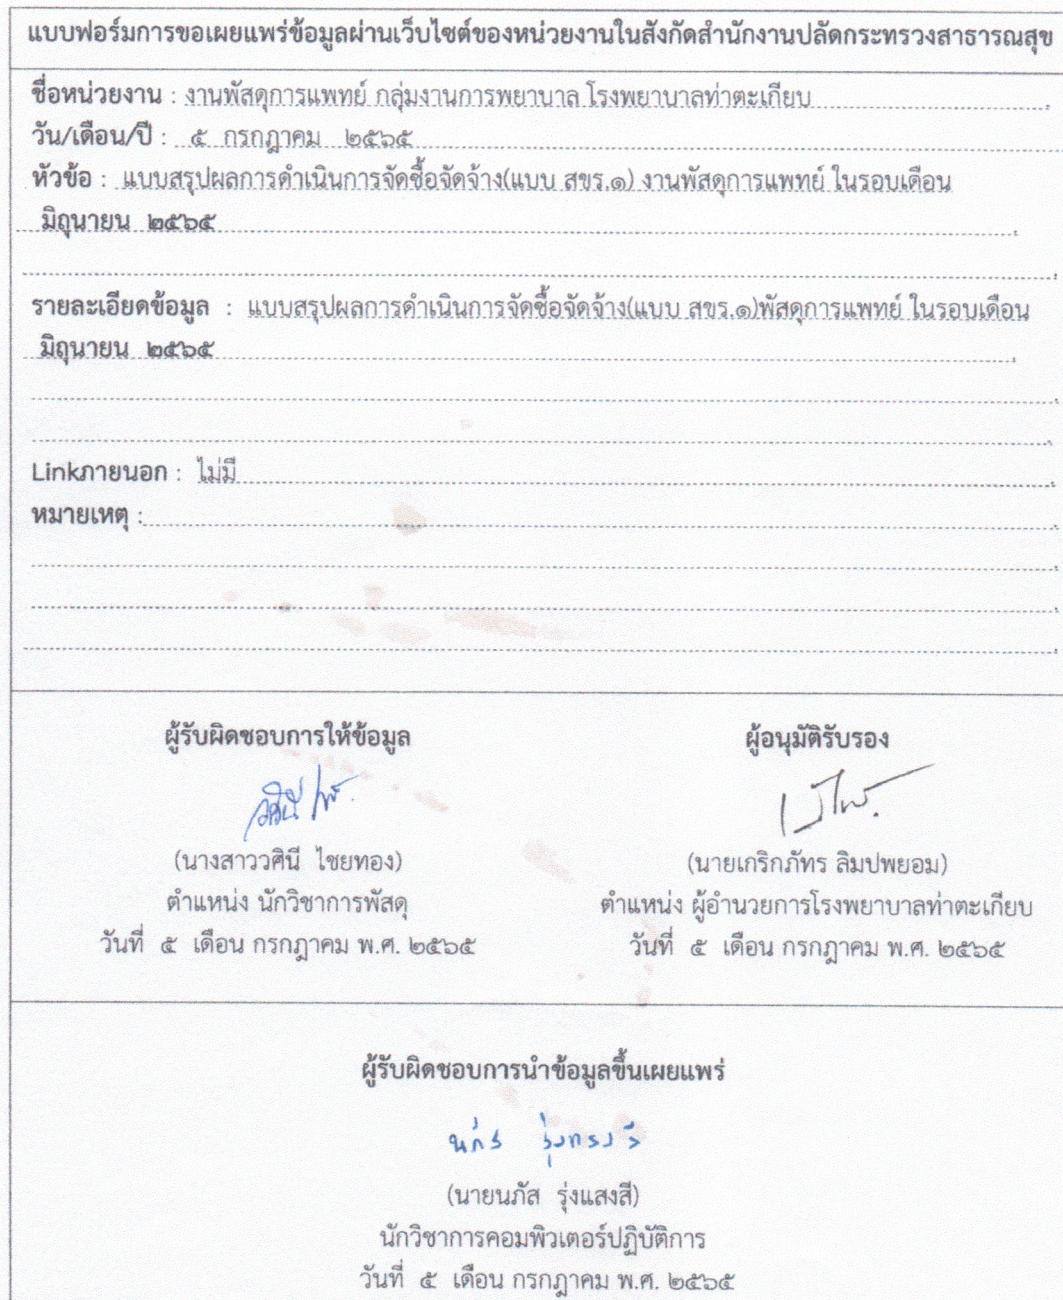 แบบฟอร์มการขอเผยแพร่ข้อมูลผ่านเว็บไซต์ของหน่วยงานในสังกัดสำนักงานปลัดกระทรวงสาธารณสุข
ชื่อหน่วยงาน : งานพัสดุการแพทย์ กลุ่มงานการพยาบาล โรงพยาบาลท่าตะเกียบ
วัน/เดือน/ปี : ๕ กรกฎาคม ๒๕๖๕
หัวข้อ : แบบสรุปผลการดำเนินการจัดซื้อจัดจ้าง(แบบ สขร.๑) งานพัสดุการแพทย์ ในรอบเดือน
มิถุนายน ๒๕๖๕
รายละเอียดข้อมูล : แบบสรุปผลการดำเนินการจัดซื้อจัดจ้าง(แบบ สขร.๑)พัสดุการแพทย์ ในรอบเดือน
มิถุนายน ๒๕๖๕
Linkภายนอก : ไม่มี
หมายเหตุ :
ผู้รับผิดชอบการให้ข้อมูล ผู้อนุมัติรับรอง
(นางสาววศินี ไชยทอง) (นายเกริกภัทร ลิมปพยอม)
ตำแหน่ง นักวิชาการพัสดุ ตำแหน่ง ผู้อำนวยการโรงพยาบาลท่าตะเกียบ
วันที่ ๕ เดือน กรกฎาคม พ.ศ. ๒๕๖๕ วันที่ ๕ เดือน กรกฎาคม พ.ศ. ๒๕๖๕
ผู้รับผิดชอบการนำข้อมูลขึ้นเผยแพร่
(นายนภัส รุ่งแสงสี)
นักวิชาการคอมพิวเตอร์ปฏิบัติการ
วันที่ ๕ เดือน กรกฎาคม พ.ศ. ๒๕๖๕